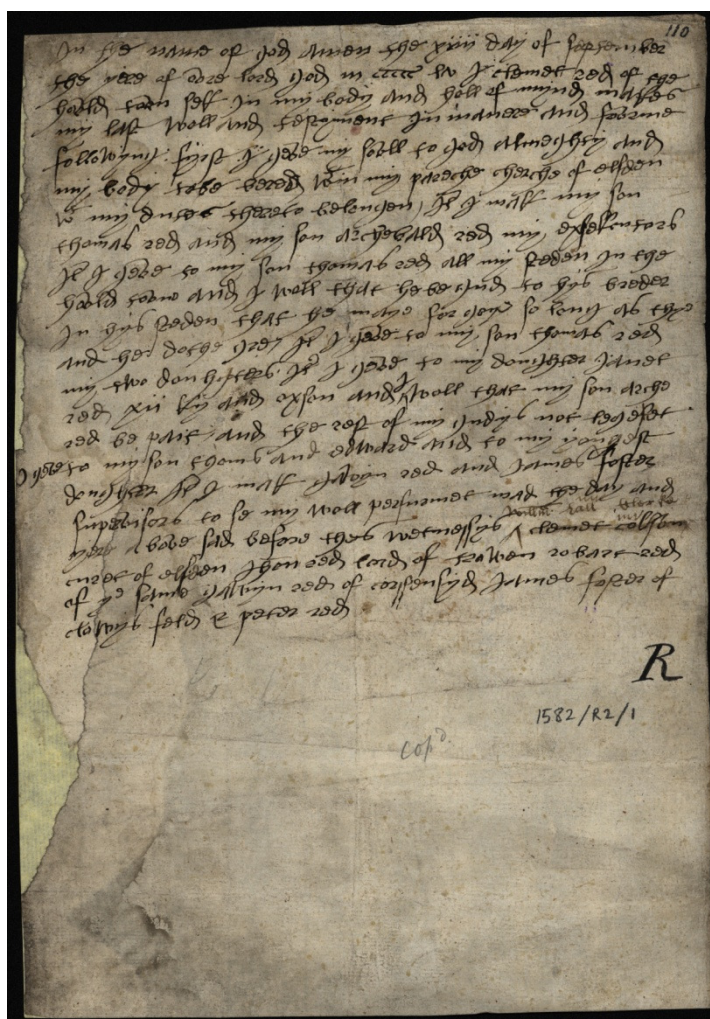 110
In the name of god amen the xiiij day of september
the yere of oore lord god m ccccc lv I clemet red of the
hoold town self In my body and holl of mynd makes
my last woll and testyment In maner and forme
followyng fyrst I geve my soull to god almeghty and
my body to be bered win my pareche cherche of elsden
w my duets thereto belongen It I mak my son
thomas red and my son archebald red my exsekutors
It I geve to my son thomas red all my steden In the
hoold town and I woll that he be gud to hys broder
In hys steden that he maye for so long as they
and he doth agre It I geve to my son thomas red
my two It I geve to my doughter Janet
red xii ky and oxson and I woll that my son arche
red be part and the rest of my gudys not legeset
I geve to my son thoms and edward and to my yongest
doughter It I mak gawyn red and James foster
supervisors to se my woll performet mad the day and
yere above sad before thes wetnessys clemet
curet of elsden Jhon red lord of trowen robart red
of ye same gawyn red of corssensyd James foster of
clowys feld & peter red
R
1582/R2/1
Copd